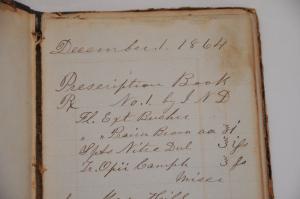 December 1. 1864
Prescription Book
Rx No. 1. by J N D
Fl. Ext Buchu
" " Brava aa ℥i
Spts Nitre Dul ℥ifs
Tr. Opii Camph ℥fs
Misce